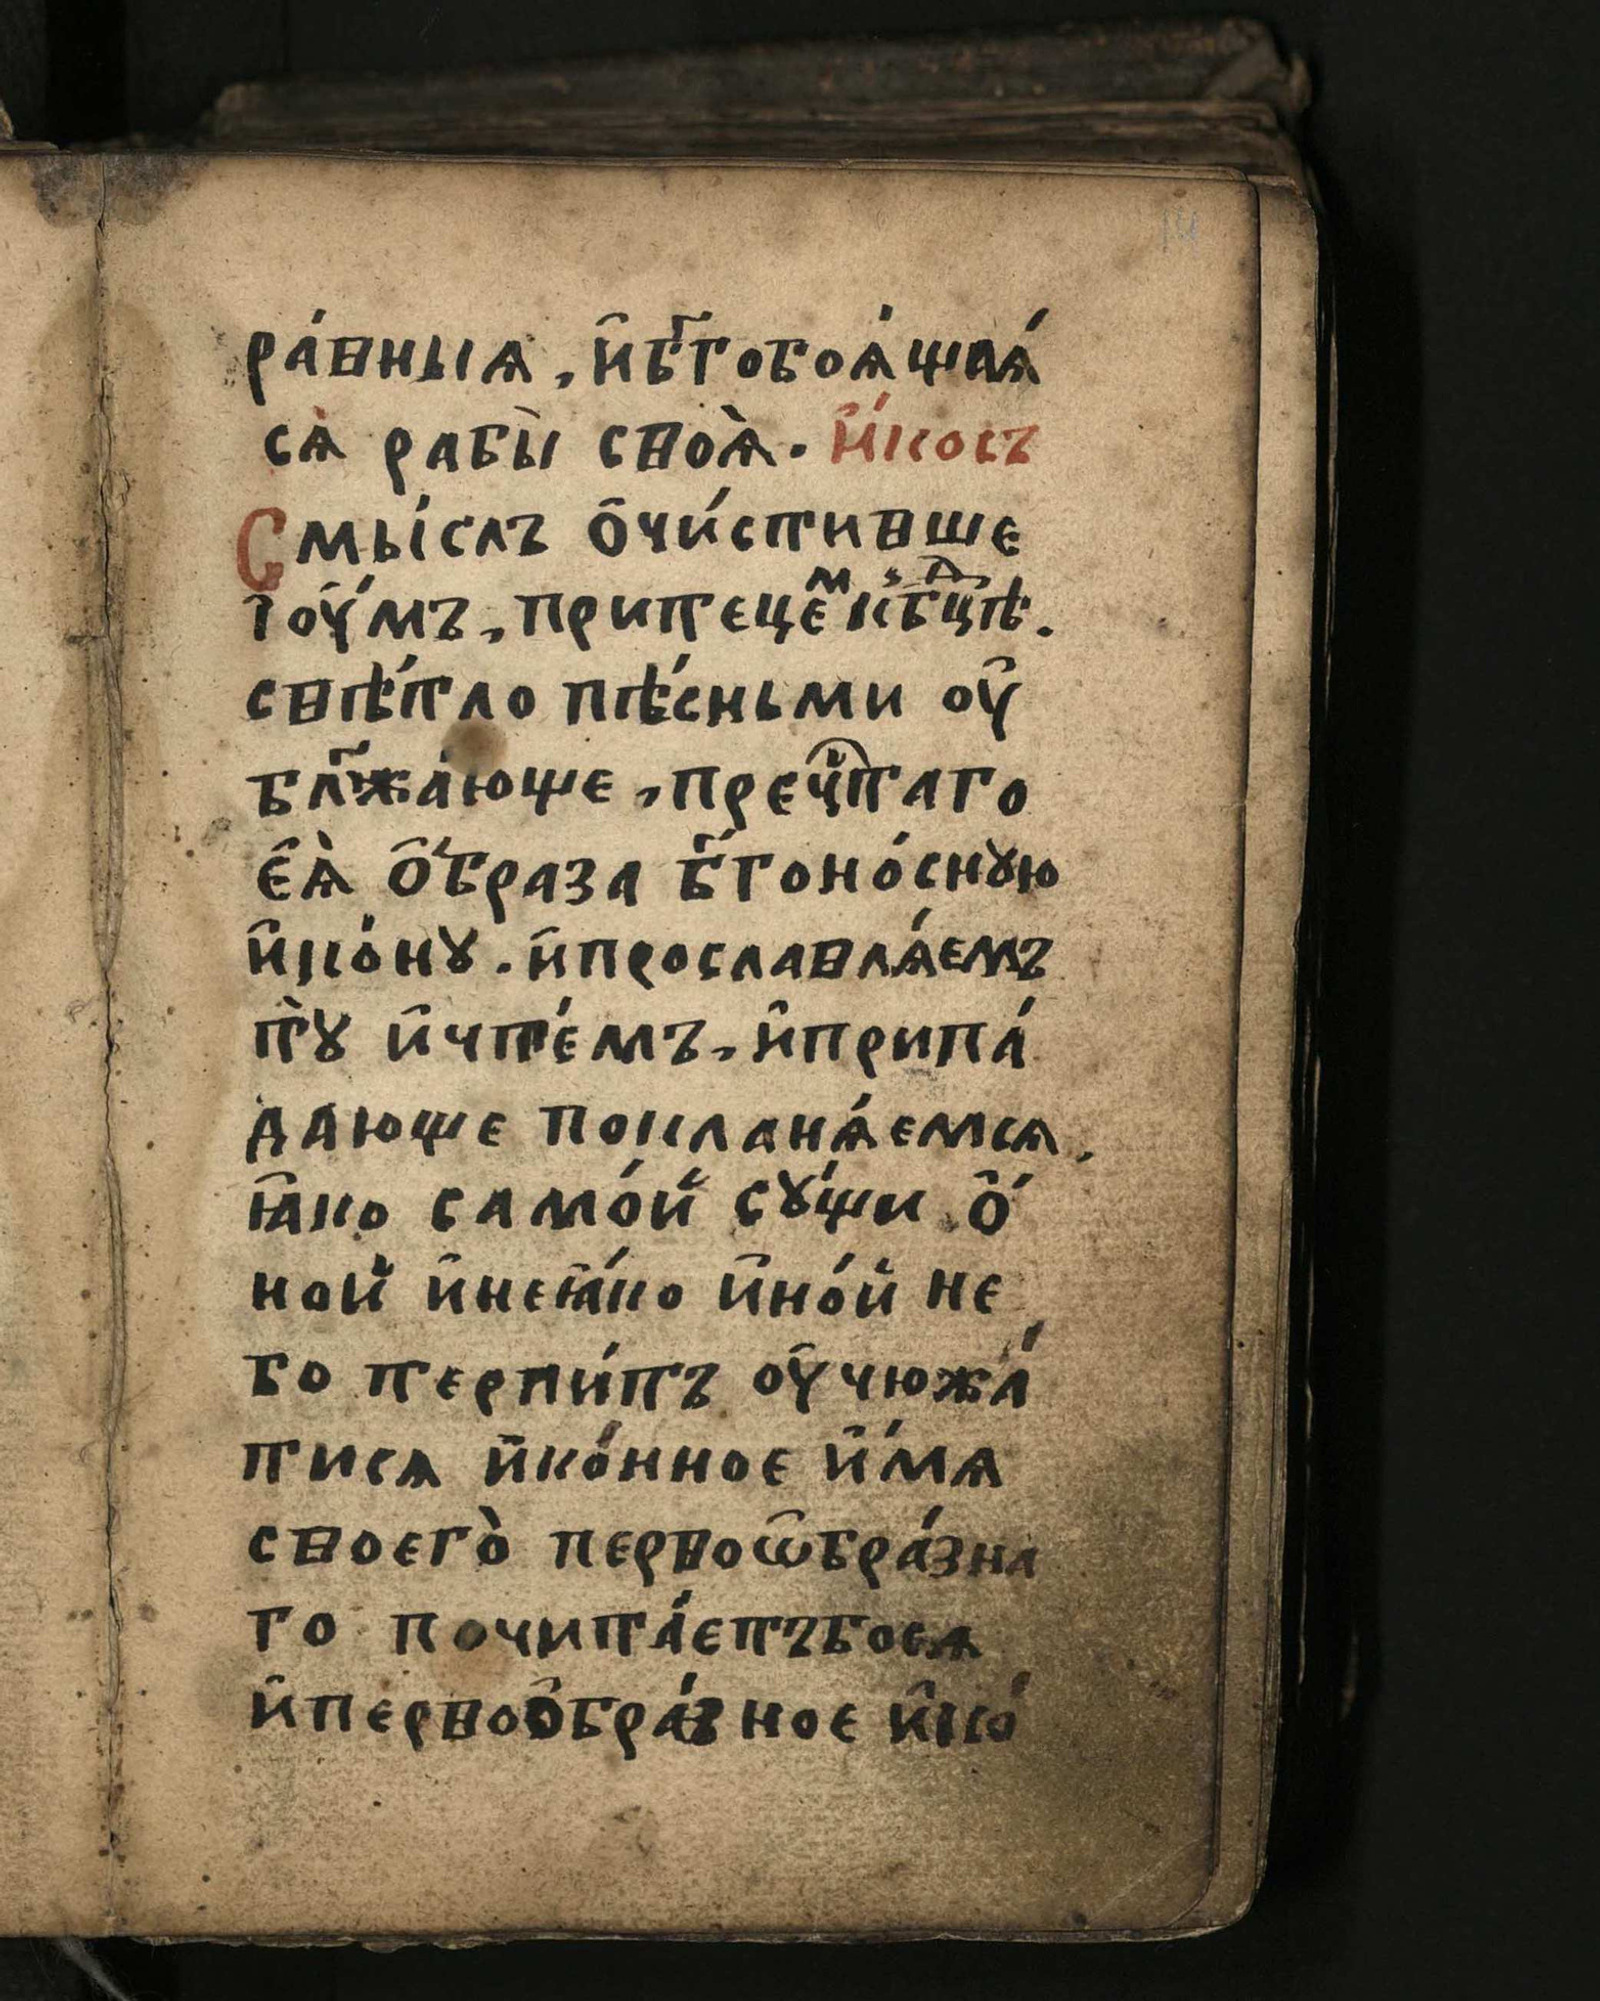 ра́вныѧ, и҆бг҃обоѧ́щаѧ́
сѧ̀ рабы̀ своѧ̀. и҆́косъ
Смы́слъ ѻ҆чи́стивше
і оу҆́мъ, притеце́мъ кбц҃дѣ.
свѣ́тло пѣ́сньми оу҆
бл҃жа́юще, преч҇таго
є҆ѧ̀ ѻ҆́браза бг҃оно́сную
и҆ко́ну. и҆прославлѧ́емъ
тꙋ̀ и҆чте́мъ, и҆припа́
дающе покланѧ́емсѧ,
ꙗ҆ко само́й сꙋ́щи ѻ҆́
ной и҆неꙗ҆́ко и҆но́й не
бо терпи́тъ оу҆чюжа́
тисѧ и҆ко́нное и҆́мѧ
своего̀ первоѡ҆бра́зна
го почита́етъбосѧ
и҆первоѻ҆бра́зное и҆ко́